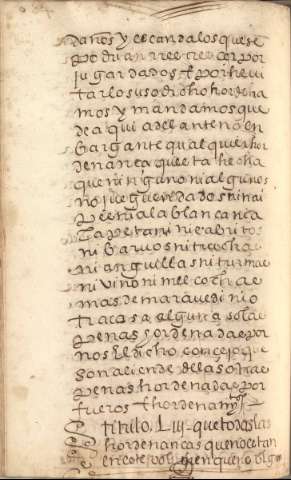 daños y escandalos que se
podrian rrecreçer por
jugar dados E por hevi
tar lo suso dicho hordena
mos y mandamos que
de aqui adelante no en
bargante qualquier hor
denança que esta hecha
que ninguno ni algunos
no jueguen dados ni nai
pes ni a la blanca ni a
ni cabritos
ni
ni anguillas ni turmas
ni vino ni mel cocha e
mas de maravedi ni o
tra cosa alguna so las
penas hordenadas por
nos El dicho conçejo que
son aliende de las otras
penas hordenadas por
fueros E hordenamyos
titulo Liii que todas las
hordenanças que no estan
en este bolumen que no balga